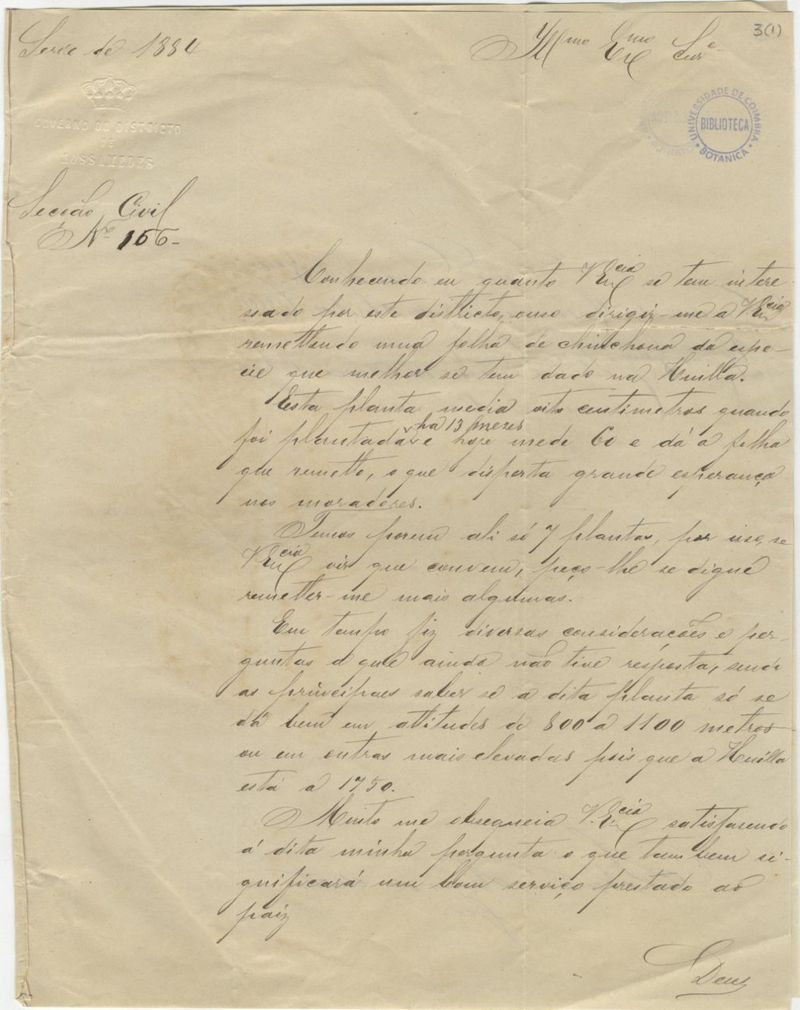 3(1)
Serie de 1884
Illmo Exmo Snr
GOVERNO DO DISTRICTO
DE
MOSSAMEDES
UNIVERSIDADE DE COIMBRA
BIBLIOTECA
BOTANICA
Secção Civil
No 166
Conhecendo eu quanto V. Excia se tem interes-
sado por este districto, ouso dirigir-me a V. Excia
remettendo uma folha de chinchona da espe-
cie que melhor se tem dado na Huilla.
Esta planta media oito centimetros quando
foi plantada há 13 mezes e hoje mede 60 e dá a folha
que remetto, o que disperta grande esperança
nos moradores.
Temos porem ali só 7 plantas, por isso, se
V. Excia vir que convem, peço-lhe se digne
remetter-me mais algumas.
Em tempo fiz diversas considerações e per-
guntas a que ainda não tive resposta, sendo
as principaes saber se a dita planta só se
dá bem em altitudes de 800 a 1100 metros
ou em outras mais elevadas pois que a Huilla
está a 1750.
Muito me obsequeia V. Excia satisfazendo
á dita minha pergunta o que tambem si-
gnificará um bom serviço prestado ao
paiz
Deus